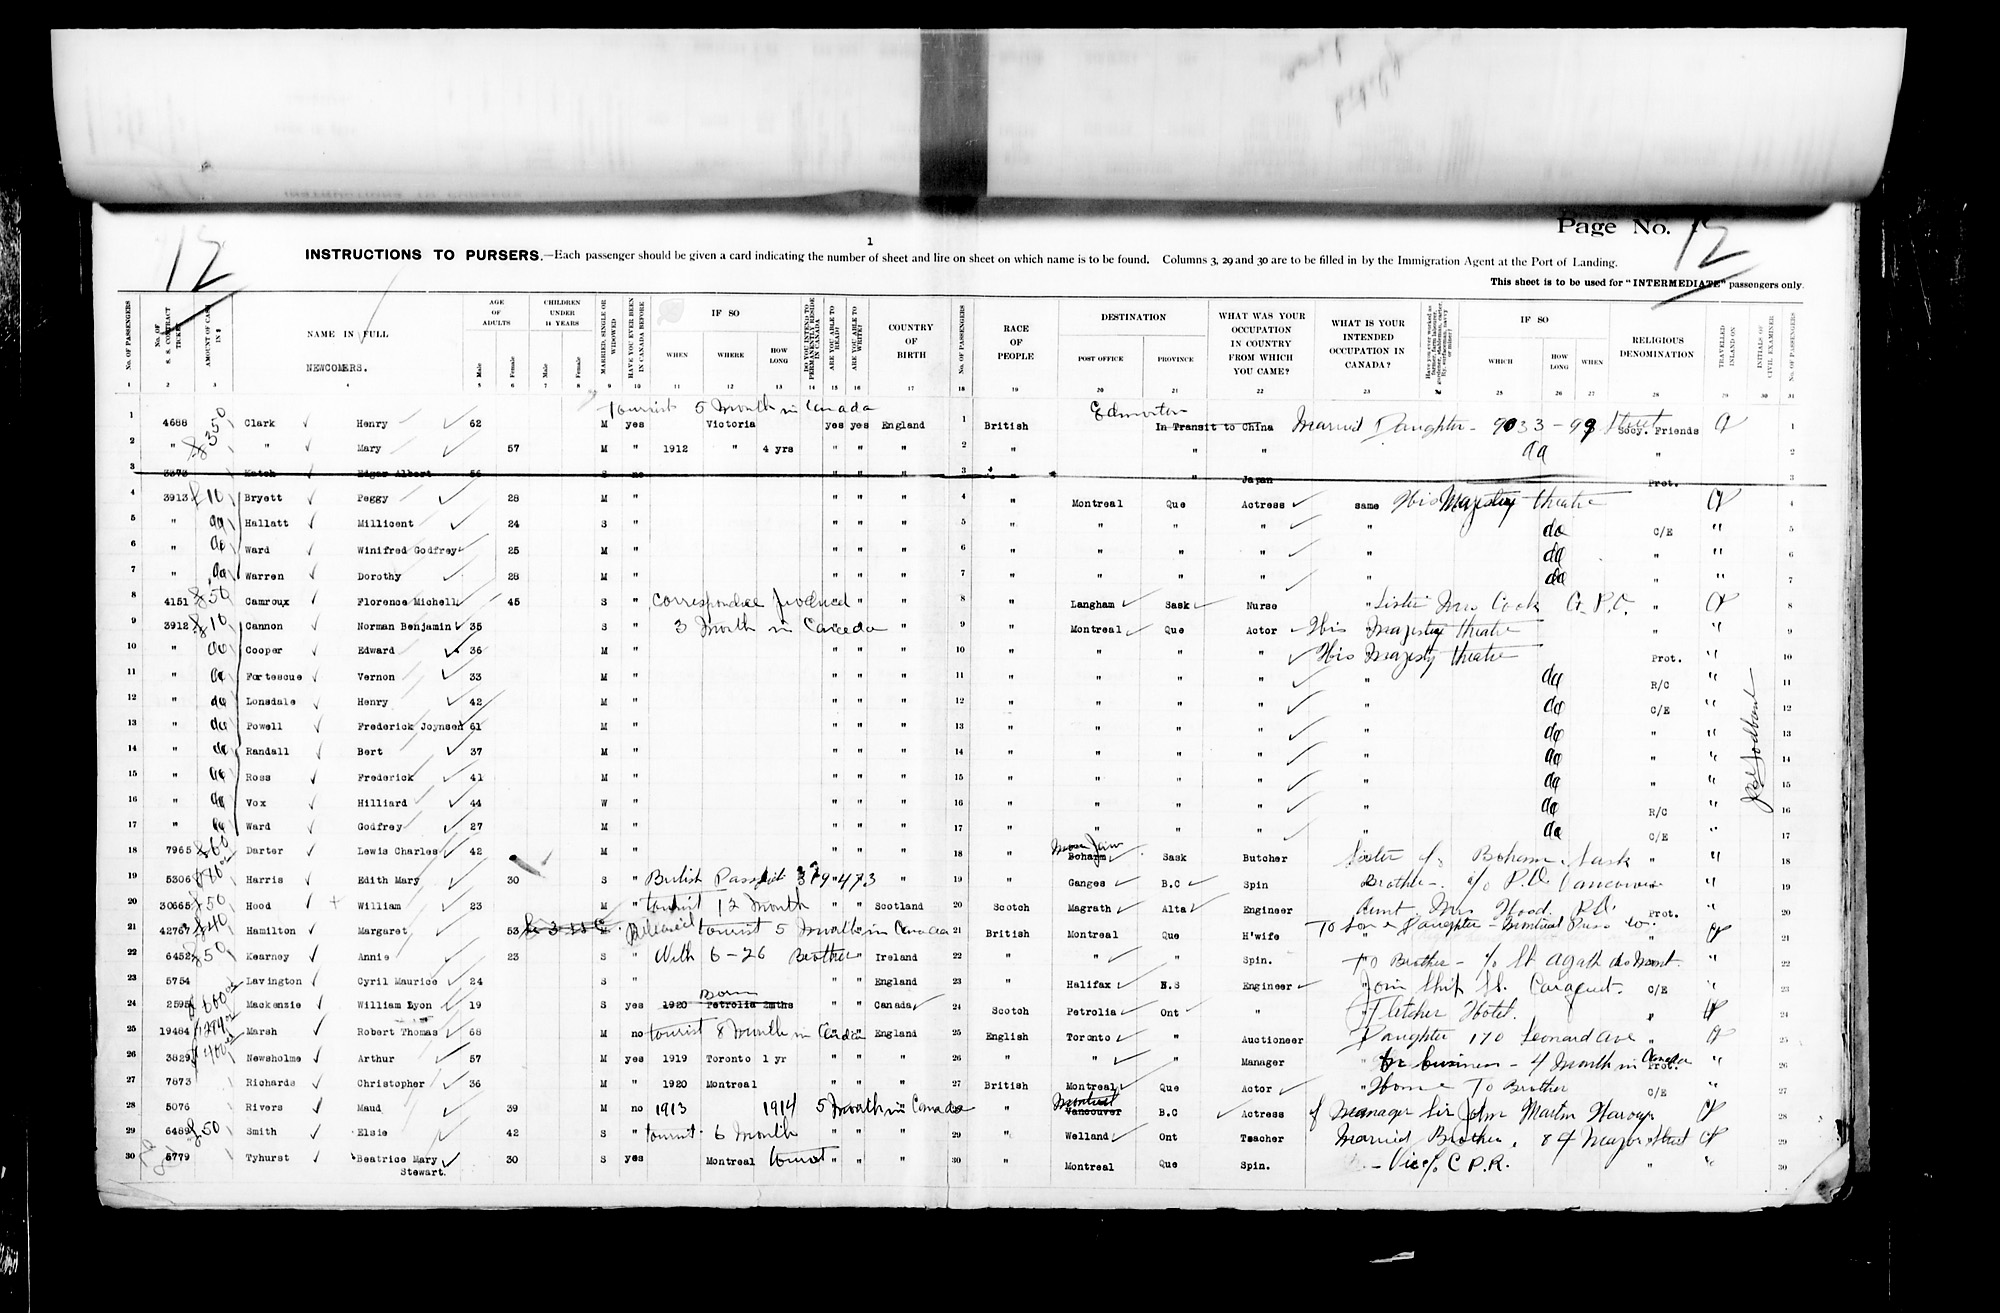 Page No. 12
12
1
INSTRUCTIONS TO PURSERS.—Each passenger should be given a card indicating the number of sheet and line on sheet on which name is to be found. Columns 3, 29 and 30 are to be filled in by the Immigration Agent at the Port of Landing.
This sheet is to be used for "INTERMEDIATE" passengers only.
No. of PASSENGERS No. of S. S. CONTRACT TICKET AMOUNT OF CASH IN $ NAME IN FULL NEWCOMERS. AGE OF ADULTS Male Female CHILDREN UNDER 14 YEARS Male Female MARRIED, SINGLE OR WIDOWED HAVE YOU EVER BEEN IN CANADA BEFORE IF SO WHEN WHERE HOW LONG DO YOU INTEND TO PERMANENTLY RESIDE IN CANADA ARE YOU ABLE TO READ? ARE YOU ABLE TO WRITE? COUNTRY OF BIRTH No. of PASSENGERS RACE OF PEOPLE DESTINATION POST OFFICE PROVINCE WHAT WAS YOUR OCCUPATION IN COUNTRY FROM WHICH YOU CAME? WHAT IS YOUR INTENDED OCCUPATION IN CANADA? IF SO WHICH HOW LONG WHEN RELIGIOUS DENOMINATION TRAVELLED INLAND ON INITIALS OF CIVIL EXAMINER No. of PASSENGERS
1 2 3 4 5 6 7 8 9 10 11 12 13 14 15 16 17 18 19 20 21 22 23 24 25 26 27 28 29 30 31
tourist 5 Month in Canada Edmonton
1 4688 £350 Clark Henry 62 M yes Victoria yes yes England 1 British In Transit to China Married Daughter - 9033 - 99 Street Socy. Friends 1
2 " £35 " Mary 57 M " 1912 " 4 yrs " " " 2 " " " do " 2
3 3373 Katch Edgar Albert 56 S no 3 " " Japan Prot.
4 3913 £10 Bryett Peggy 28 M " " " " 4 " Montreal Que Actress same His Majesty theatre 4
5 " do Hallatt Millicent 24 S " " " " 5 " " " " " do C/E " 5
6 " do Ward Winifred Godfrey 25 M " " " " 6 " " " " " do " " 6
7 " do Warren Dorothy 28 M " " " " 7 " " " " " do " " 7
8 4151 £50 Camroux Florence Michell 45 S " correspondce produced " " 8 " Langham Sask Nurse " Sister Mrs Cook G.P.O. " 8
9 3912 £10 Cannon Norman Benjamin 35 S " 3 Month in Canada " 9 " Montreal Que Actor His Majesty theatre " " 9
10 " do Cooper Edward 36 M " " " " 10 " " " " His Majesty theatre Prot. " 10
11 " do Fortescue Vernon 33 M " " " " 11 " " " " " do R/C " 11
12 " do Lonsdale Henry 42 M " " " " 12 " " " " " do C/E " 12
13 " do Powell Frederick Joynsen 61 M " " " " 13 " " " " " do " " 13
14 " do Randall Bert 37 M " " " " 14 " " " " " do " " 14
15 " do Ross Frederick 41 M " " " " 15 " " " " " do " " 15
16 " do Vox Hilliard 44 W " " " " 16 " " " " " do R/C " 16
17 " do Ward Godfrey 27 M " " " " 17 " " " " " do C/E " 17
Moose Jaw
18 7965 £60 Darter Lewis Charles 42 M " " " " 18 " Boharm Sask Butcher Sister c/o Boharm. Sask " " 18
19 5306 Harris Edith Mary 30 S " British Passport " 19 " Ganges B.C Spin Brother - c/o P.O. Vancouver " 19
20 30665 £50 Hood William 23 M " tourist 12 Month " " Scotland 20 Scotch Magrath Alta Engineer Aunt. Mrs Hood. P.O. Prot. " 20
21 42767 £40 Hamilton Margaret 53 M tourist 5 Month in Canada 21 British Montreal Que H'wife To Son & Daughter - " 21
22 6452 £50 Kearney Annie 23 S " With 6-26 Brother " Ireland 22 " " " Spin. To Brother - c/o St Agath " 22
23 5754 Lavington Cyril Maurice 24 S " " " England 23 " Halifax N.S Engineer Join Ship SS. Caraquet. C/E " 23
Born
24 2595 Mackenzie William Lyon 19 S yes 1920 Petrolia 2mths " " Canada 24 Scotch Petrolia Ont " Fletcher Hotel. " 24
25 19484 Marsh Robert Thomas 68 M no tourist 8 Month in Canada England 25 English Toronto " Auctioneer Daughter 170 Leonard Ave " 25
26 3829 Newsholme Arthur 57 M yes 1919 Toronto 1 yr " " " 26 " " " Manager " for business - 4 Month in Canada Prot. " 26
27 7873 Richards Christopher 36 M " 1920 Montreal " " " 27 British Montreal Que Actor " Home To Brother C/E " 27
Montreal
28 5076 Rivers Maud 39 M no 1913 1914 5 Month in Canada " Vancouver B.C Actress of Manager Sir John Martin Harvey 28
29 6489 £50 Smith Elsie 42 S " tourist 6 Month " " " 29 " Welland Ont Teacher Married Brother. 84 Major Street 29
30 5779 Tyhurst Beatrice Mary 30 S yes Montreal tourist " " " 30 " Montreal Que Spin. c/o C.P.R. " " 30
Stewart.